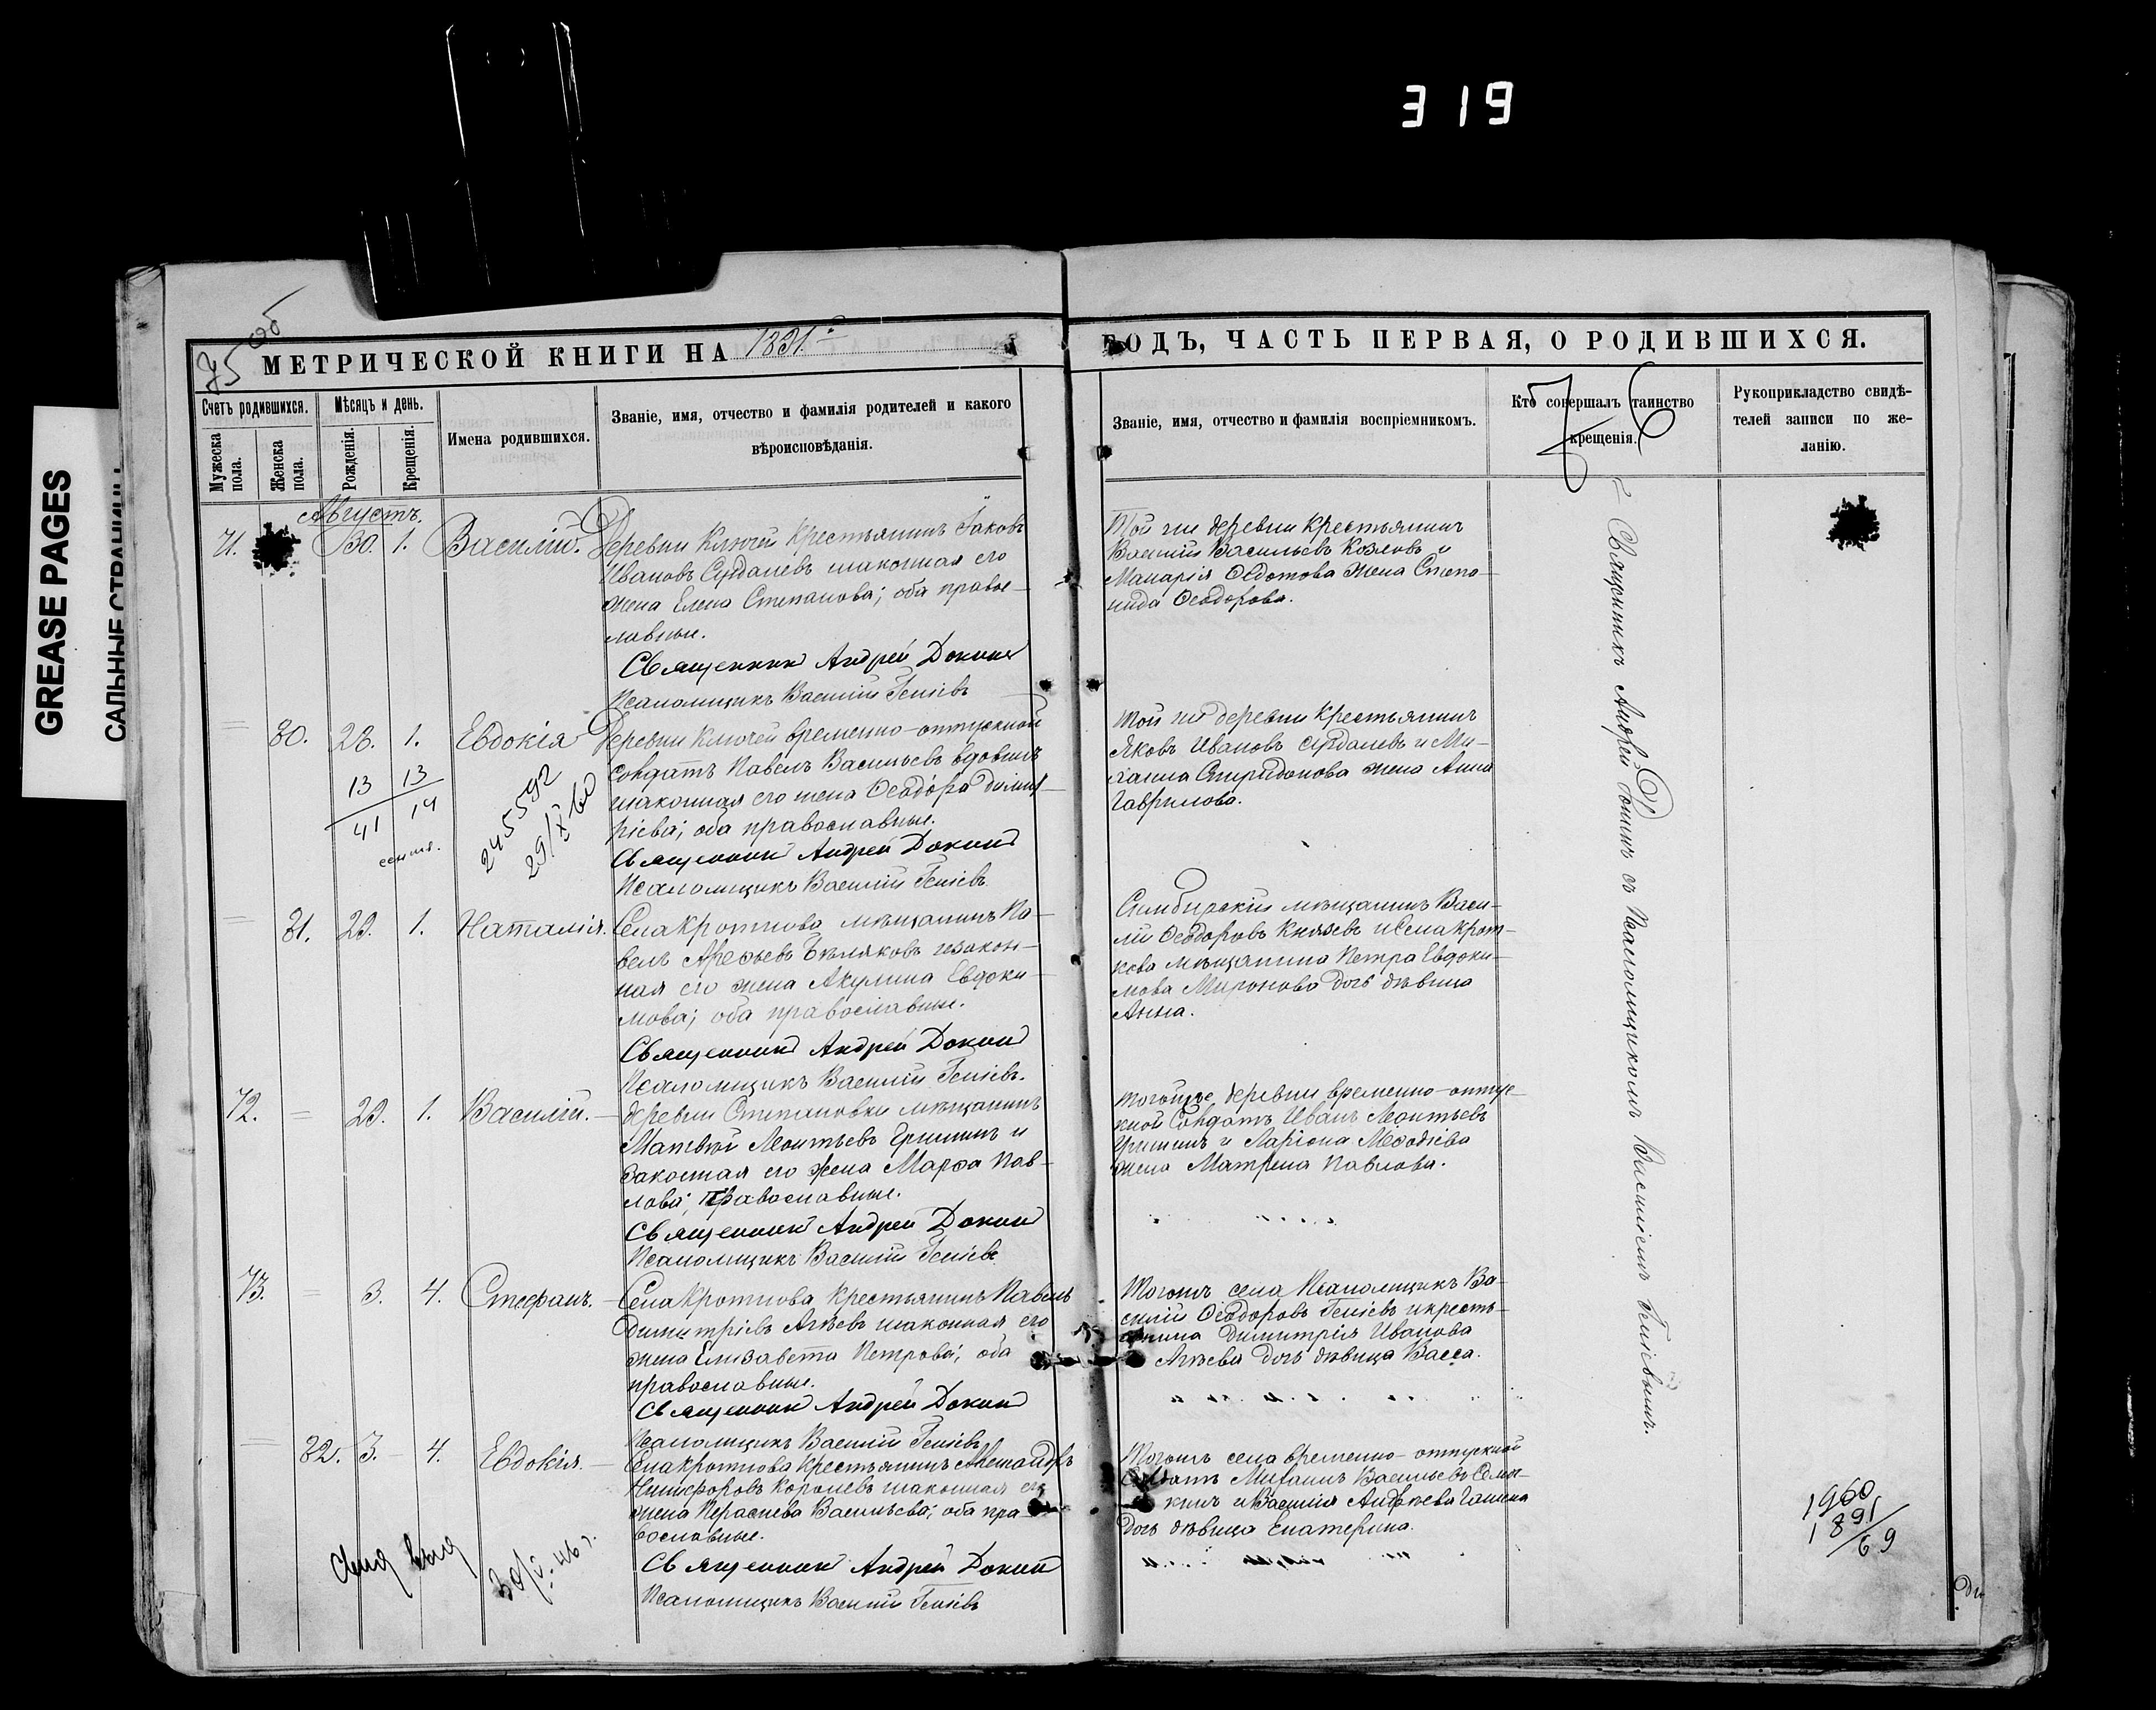 319
GREASE PAGES
САЛЬНЫЕ СТРАНИЦЫ
75 об
76
МЕТРИЧЕСКОЙ КНИГИ НА 1891й
ГОДЪ, ЧАСТЬ ПЕРВАЯ, О РОДИВШИХСЯ.
Счетъ родившихся.
Мужеска пола.
Женска пола.
Мѣсяцъ и день.
Рожденія.
Крещенія.
Имена родившихся.
Званіе, имя, отчество и фамилія родителей и какого
вѣроисповѣданія.
Званіе, имя, отчество и фамилія воспріемниковъ.
Кто совершалъ таинство
крещенія.
Рукоприкладство свидѣ-
телей записи по же-
ланію.
Августъ.
71. 30. 1. Василій.
Деревни Ключей крестьянинъ Іаковъ
Ивановъ и законная его
жена Елена Степанова; оба правос-
лавные.
Священникъ Андрей Докинъ
Псаломщикъ Василій Геніевъ
Той же деревни крестьянинъ
Василій Васильевъ Козловъ и
Макарія Ѳедотова жена Степо-
нида Ѳеодорова.
80. 28. 1. Евдокія
Деревни Ключей временно-отпускной
солдатъ Павелъ Васильевъ
и законная его жена Ѳеодора Димит-
ріева; оба православные.
Священникъ Андрей Докинъ
Псаломщикъ Василій Геніевъ
13 13
41 14
245592
29/X 60
Той же деревни крестьянинъ
Яковъ Ивановъ и Ми-
хаила Спиридонова жена Анна
Гаврилова.
81. 29. 1. Наталія.
Села Кроткова мѣщанинъ Па-
велъ Арефьевъ Бѣляковъ и закон-
ная его жена Акулина Евдоки-
мова; оба православные.
Священникъ Андрей Докинъ
Псаломщикъ Василій Геніевъ.
Симбирскій мѣщанинъ Васи-
лій Ѳеодоровъ Князевъ и села Крот-
кова мѣщанина Петра Евдоки-
мова Миронова дочь дѣвица
Анна.
72. 29. 1. Василій.
Деревни Степановки мѣщанинъ
Матвей Леонтьевъ Гришинъ и
законная его жена Марфа Пав-
лова; православные.
Священникъ Андрей Докинъ
Псаломщикъ Василій Геніевъ
Той же деревни временно-отпус-
кной солдатъ Иванъ Леонтьевъ
Гришинъ и Ларіона Меѳодіева
жена Матрена Павлова.
73. 3. 4. Стефанъ.
Села Кроткова крестьянинъ Павелъ
Димитріевъ Агѣевъ и законная его
жена Елизавета Петрова; оба
православные.
Священникъ Андрей Докинъ
Псаломщикъ Василій Геніевъ
Тогожъ села Псаломщикъ Ва-
силій Ѳеодоровъ Геніевъ и кресть-
янина Димитрія Иванова
Агѣева дочь дѣвица Васса.
82. 3. 4. Евдокія.
Села Кроткова крестьянинъ Александръ
Никифоровъ Королевъ и законная его
жена Васильева; оба пра-
вославные.
Священникъ Андрей Докинъ
Псаломщикъ Василій Геніевъ
30/V-46 г.
Тогожъ села временно-отпускной
солдатъ Михаилъ Васильевъ
и Василія Андреева
дочь дѣвица Екатерина.
Священникъ Андрей Докинъ съ Псаломщикомъ Василіемъ Геніевымъ.
1960
1891
69